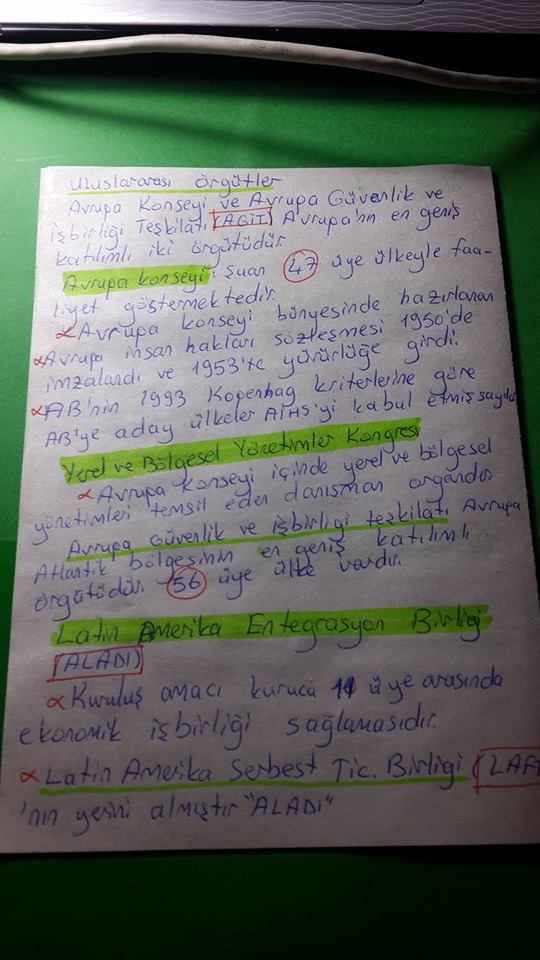 Uluslararası Örgütler
Avrupa Konseyi ve Avrupa Güvenlik ve
işbirliği Teşkilatı (AGİT) Avrupa'nın en geniş
katılımlı iki örgütüdür.
Avrupa konseyi: Şuan 47 üye ülkeyle faa-
liyet göstermektedir.
∝ Avrupa konseyi bünyesinde hazırlanan
∝ Avrupa insan hakları sözleşmesi 1950'de
imzalandı ve 1953'te yürürlüğe girdi.
∝ AB'nin 1993 Kopenhag kriterlerine göre
AB'ye aday ülkeler AİHS'yi kabul etmiş sayılır
Yerel ve Bölgesel Yönetimler Kongresi
∝ Avrupa Konseyi içinde yerel ve bölgesel
yönetimleri temsil eden danışman organdır.
Avrupa Güvenlik ve işbirliği teşkilatı Avrupa
Atlantik bölgesinin en geniş katılımlı
örgütüdür. 56 üye ülke vardır.
Latin Amerika Entegrasyon Birliği
(ALADI)
∝ Kuruluş amacı kurucu 11 üye arasında
ekonomik işbirliği sağlamasıdır.
∝ Latin Amerika Serbest Tic. Birliği (LAF
'nın yerini almıştır "ALADI"